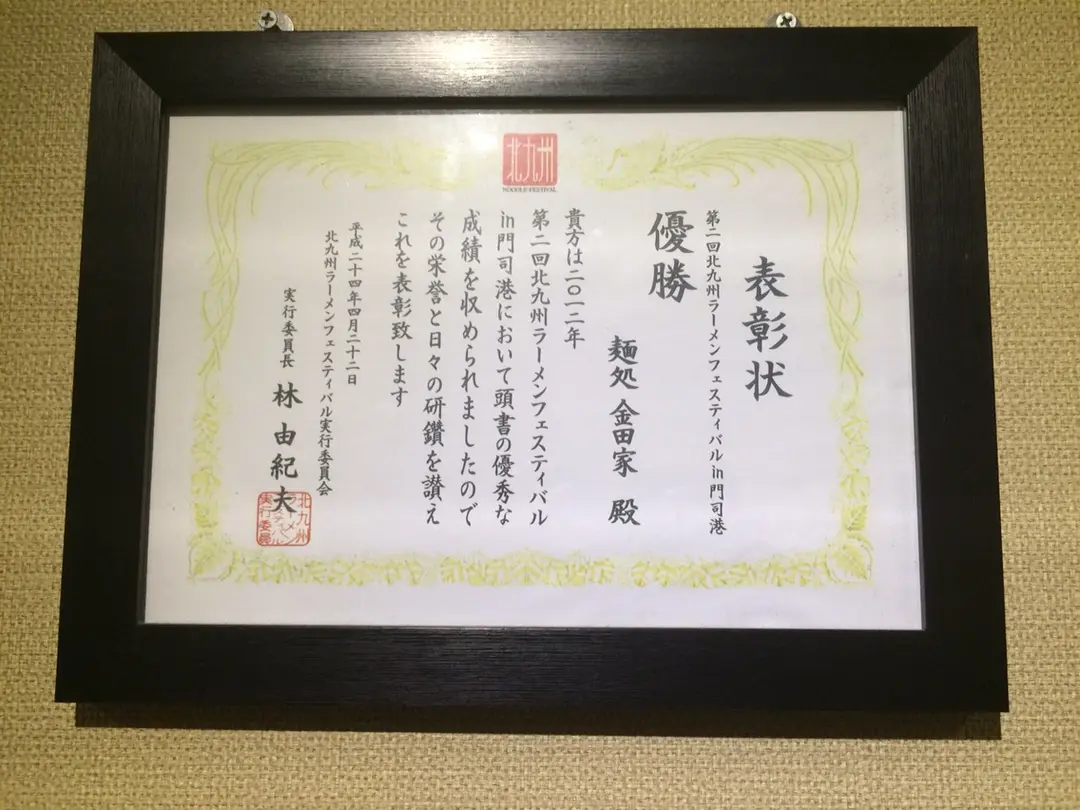 北九州
NOODLE FESTIVAL
表彰状
第二回北九州ラーメンフェスティバルin門司港
優勝
麺処 金田家 殿
貴方は二〇一二年
第二回北九州ラーメンフェスティバル
in門司港において頭書の優秀な
成績を収められましたので
その栄誉と日々の研鑽を讃え
これを表彰致します
平成二十四年四月二十二日
北九州ラーメンフェスティバル実行委員会
実行委員長 林由紀夫
北九州
実行委員